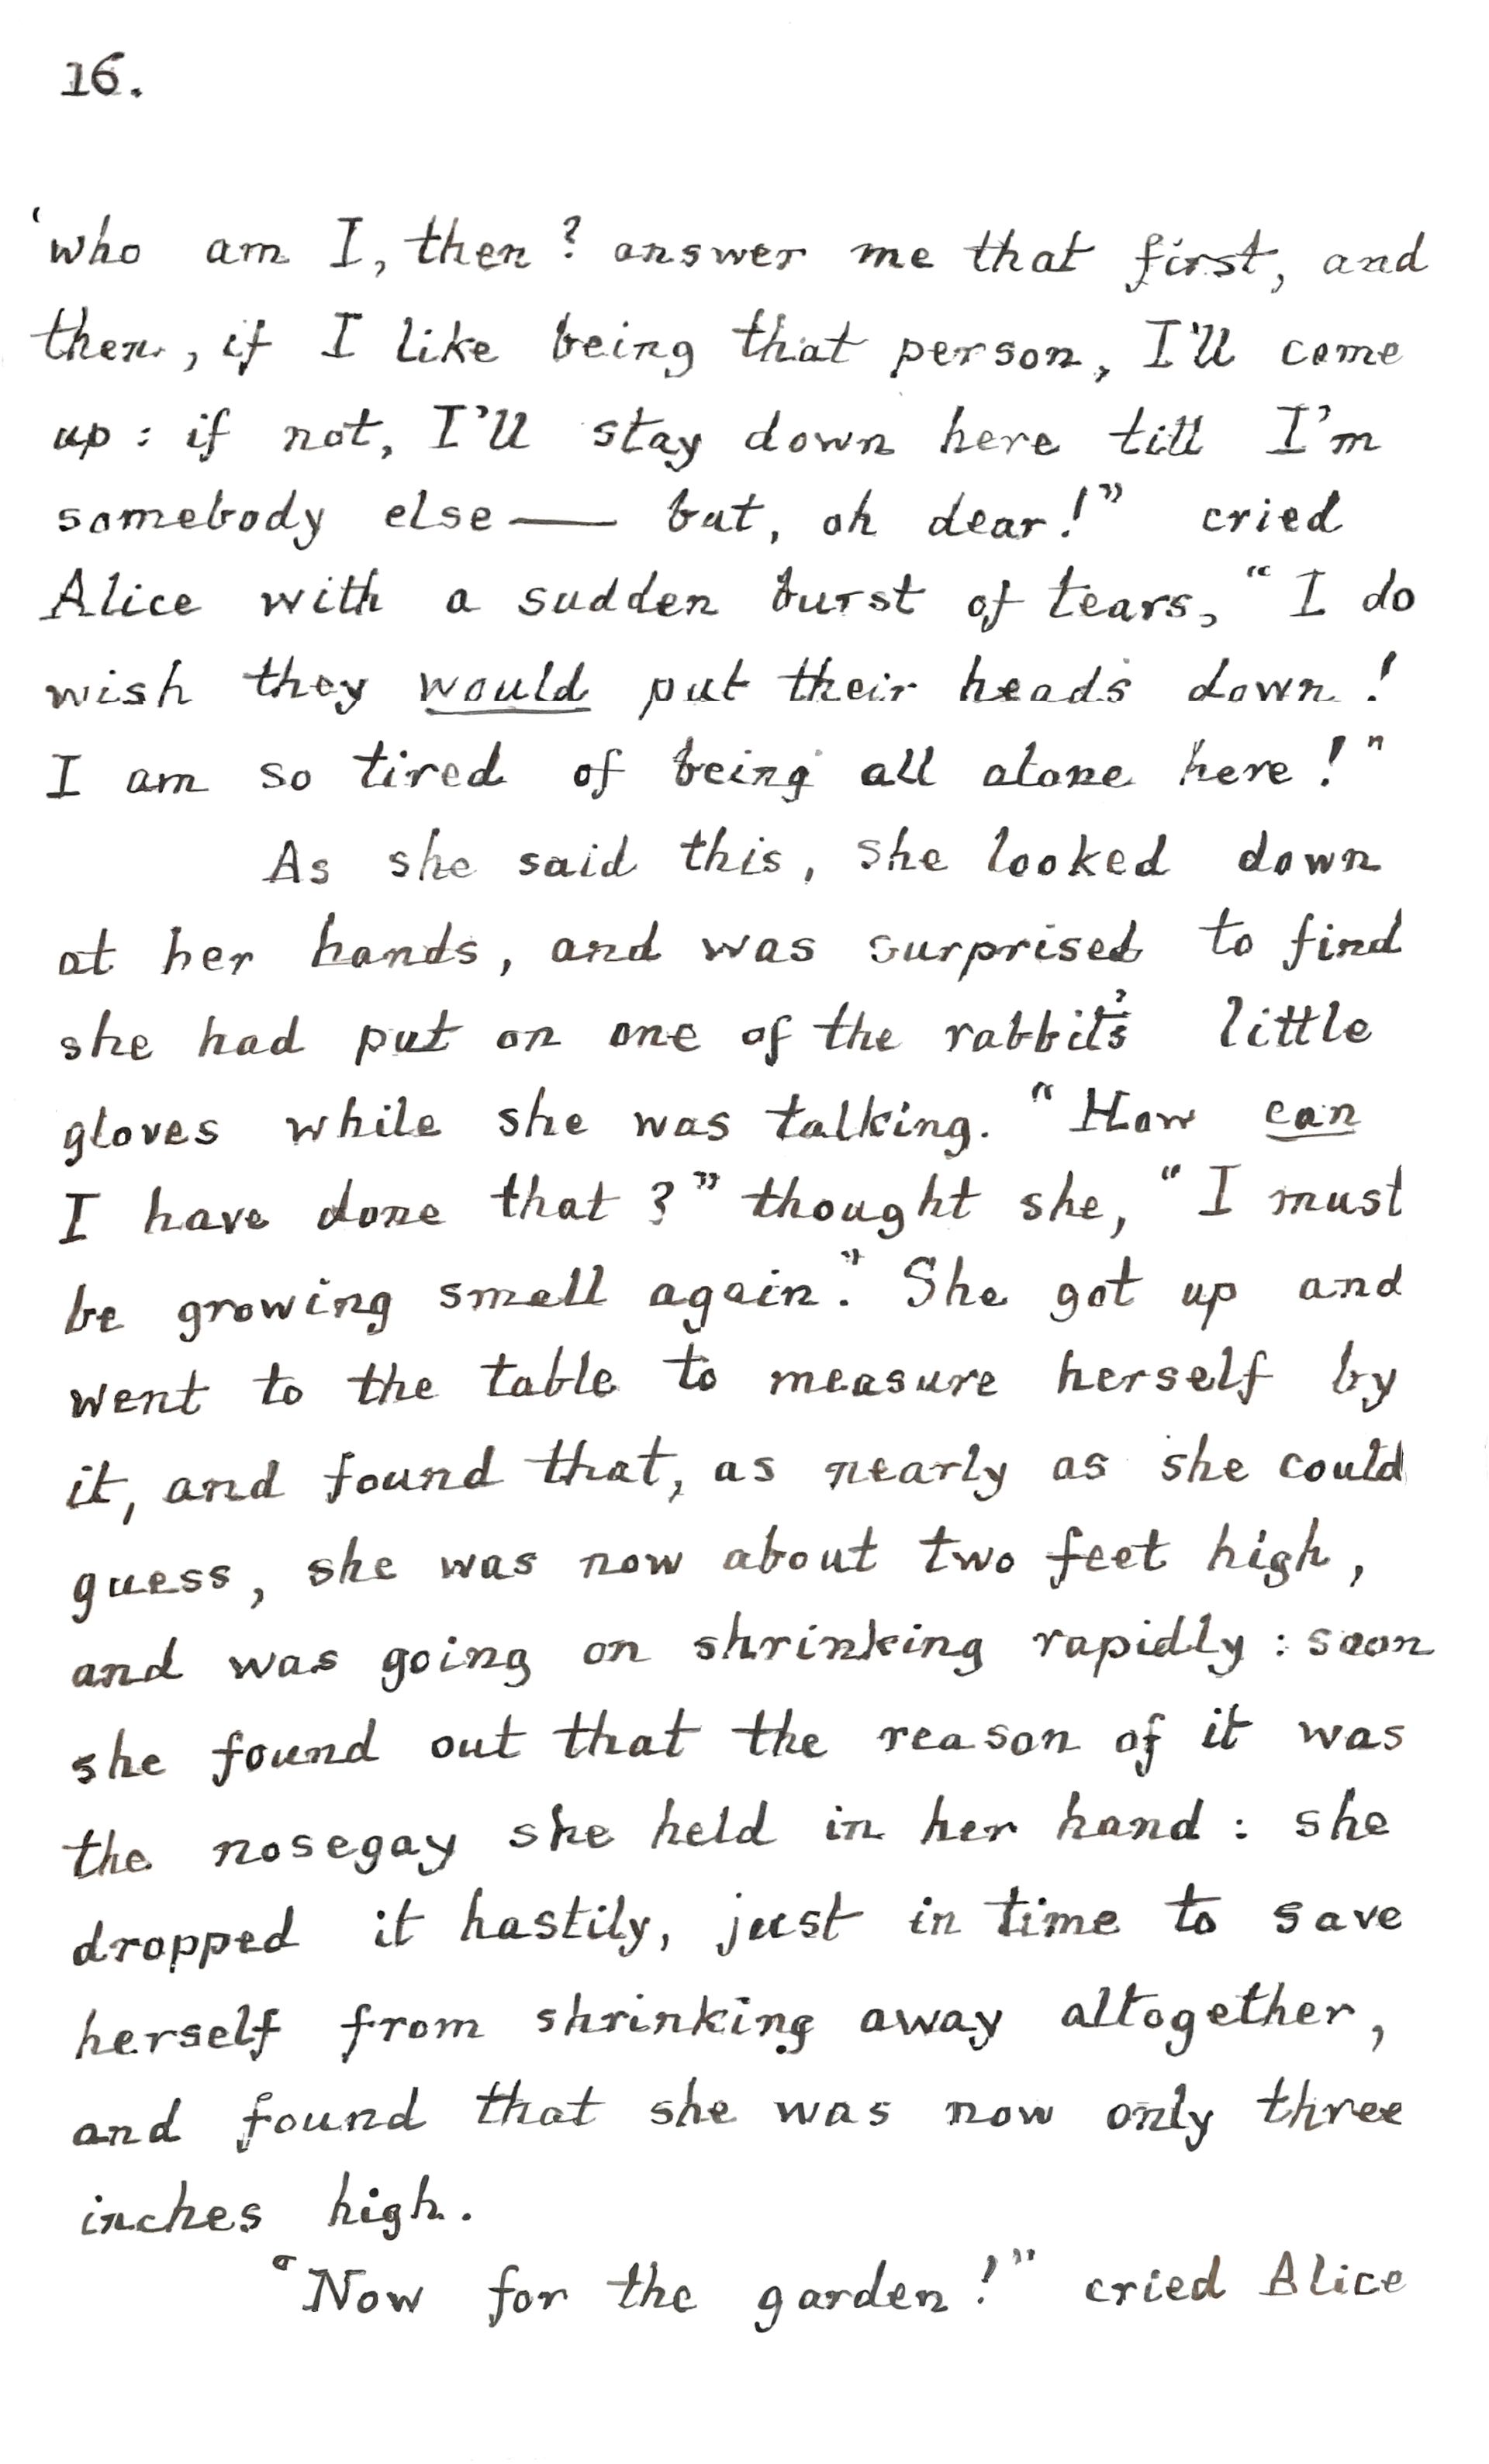 16.
'who am I, then? answer me that first, and
then, if I like being that person, I'll come
up: if not, I'll stay down here till I'm
somebody else — but, oh dear!" cried
Alice with a sudden burst of tears, "I do
wish they would put their heads down!
I am so tired of being all alone here!"
As she said this, she looked down
at her hands, and was surprised to find
she had put on one of the rabbit's little
gloves while she was talking. "How can
I have done that?" thought she, "I must
be growing small again." She got up and
went to the table to measure herself by
it, and found that, as nearly as she could
guess, she was now about two feet high,
and was going on shrinking rapidly: soon
she found out that the reason of it was
the nosegay she held in her hand: she
dropped it hastily, just in time to save
herself from shrinking away altogether,
and found that she was now only three
inches high.
"Now for the garden!" cried Alice